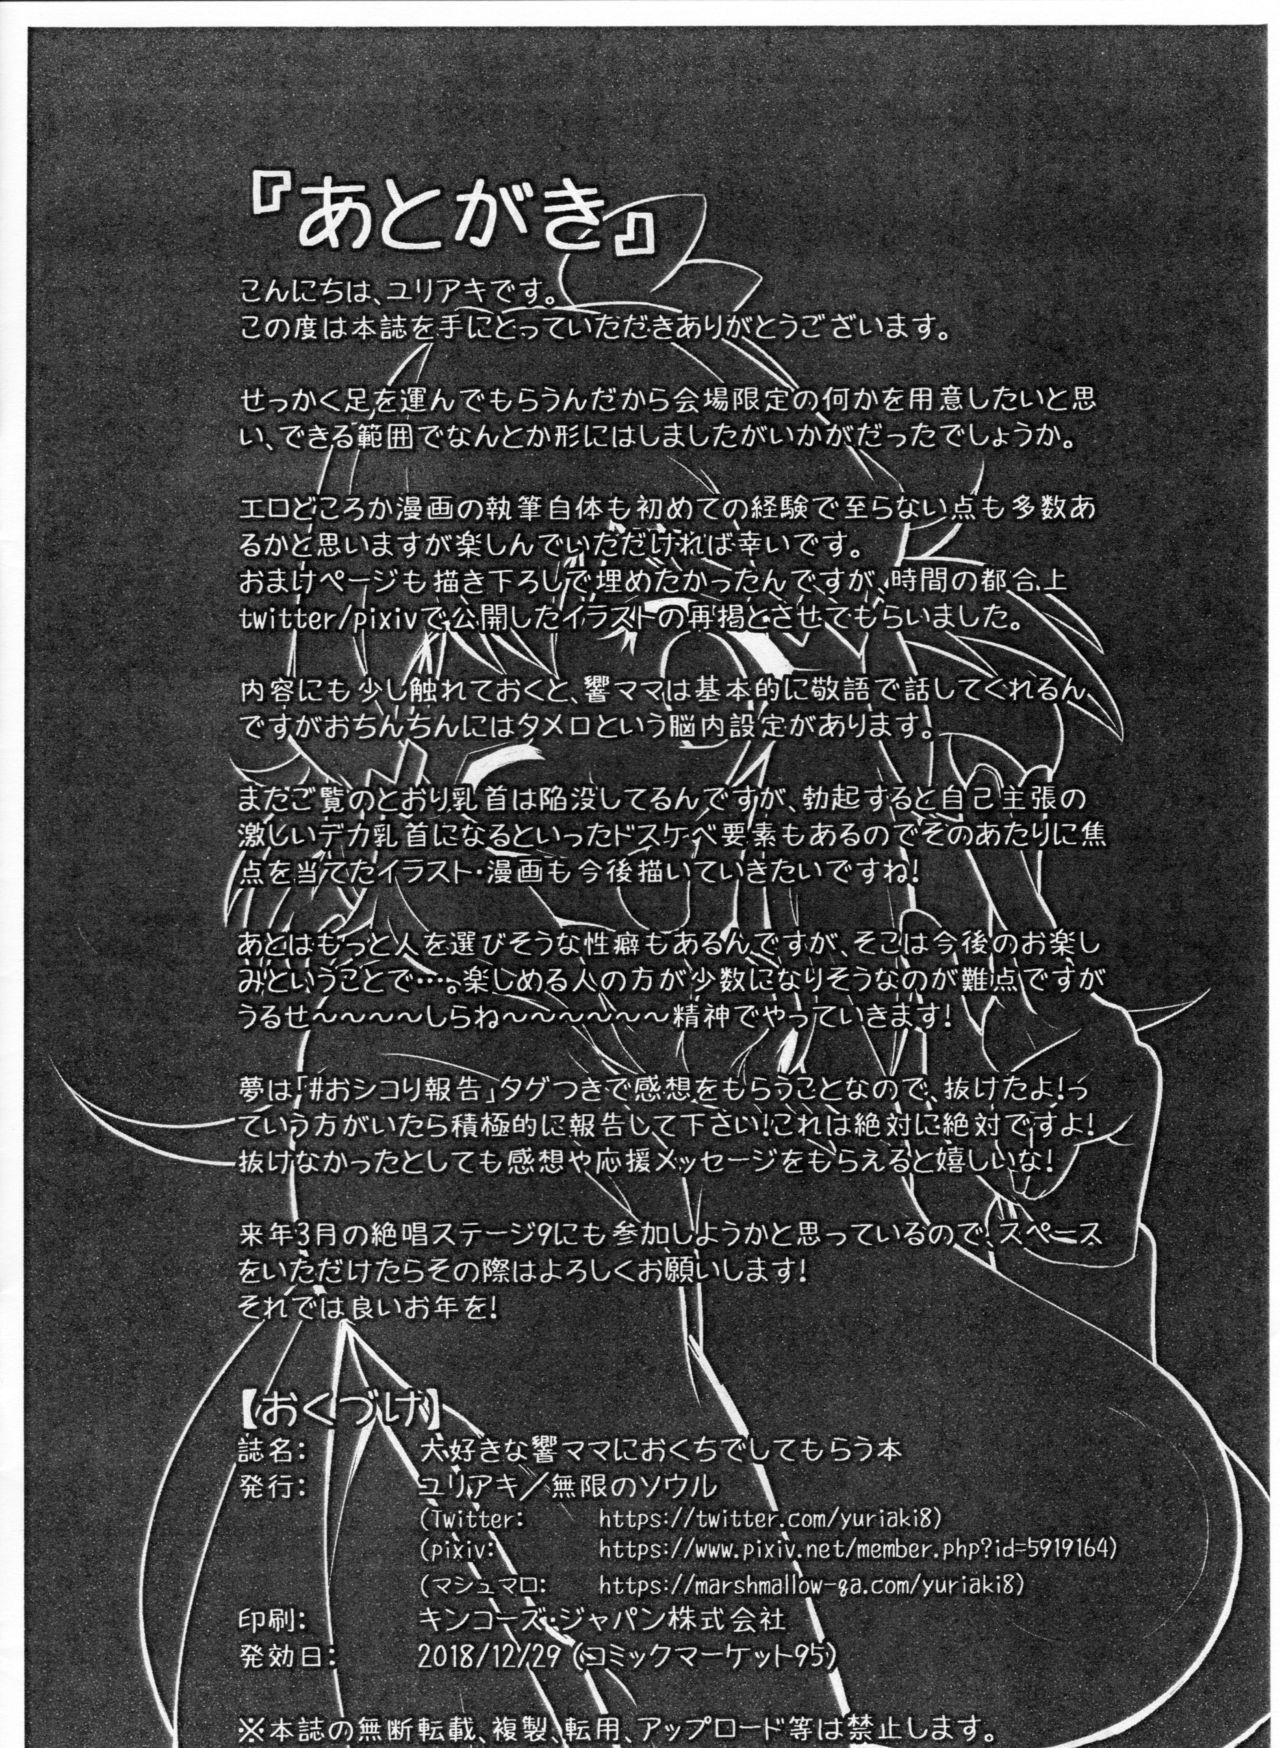 『あとがき』
こんにちは、ユリアキです。
この度は本誌を手にとっていただきありがとうございます。
せっかく足を運んでもらうんだから会場限定の何かを用意したいと思
い、できる範囲でなんとか形にはしましたがいかがだったでしょうか。
エロどころか漫画の執筆自体も初めての経験で至らない点も多数あ
るかと思いますが楽しんでいただければ幸いです。
おまけページも描き下ろしで埋めたかったんですが、時間の都合上
twitter/pixivで公開したイラストの再掲とさせてもらいました。
内容にも少し触れておくと、響ママは基本的に敬語で話してくれるん
ですがおちんちんにはタメ口という脳内設定があります。
またご覧のとおり乳首は陥没してるんですが、勃起すると自己主張の
激しいデカ乳首になるといったドスケベ要素もあるのでそのあたりに焦
点を当てたイラスト・漫画も今後描いていきたいですね!
あとはもっと人を選びそうな性癖もあるんですが、そこは今後のお楽し
みということで…。楽しめる人の方が少数になりそうなのが難点ですが
うるせ～～～～しらね～～～～～～精神でやっていきます!
夢は「#おシコり報告」タグつきで感想をもらうことなので、抜けたよ!っ
ていう方がいたら積極的に報告して下さい!これは絶対に絶対ですよ!
抜けなかったとしても感想や応援メッセージをもらえると嬉しいな!
来年3月の絶唱ステージ9にも参加しようかと思っているので、スペース
をいただけたらその際はよろしくお願いします!
それでは良いお年を!
【おくづけ】
誌名: 大好きな響ママにおくちでしてもらう本
発行: ユリアキ／無限のソウル
(Twitter: https://twitter.com/yuriaki8)
(pixiv: https://www.pixiv.net/member.php?id=5919164)
(マシュマロ: https://marshmallow-qa.com/yuriaki8)
印刷: キンコーズ・ジャパン株式会社
発効日: 2018/12/29 (コミックマーケット95)
※本誌の無断転載、複製、転用、アップロード等は禁止します。